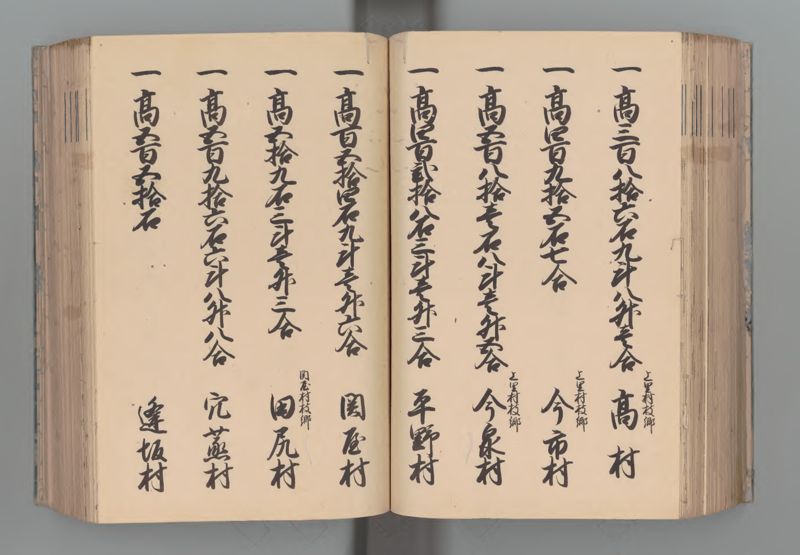 一高三百八拾六石九斗八升壱合 上里村枝郷 高村
一高四百九拾五石七合 上里村枝郷 今市村
一高五百八拾壱石八斗壱升五合 上里村枝郷 今泉村
一高四百弐拾八石三斗壱升三合 平野村
一高百五拾四石九斗壱升六合 関屋村
一高五拾九石三斗壱升三合 関屋村枝郷 田尻村
一高五百九拾六石六斗八升八合 穴蒸村
一高五百五拾石 逢坂村